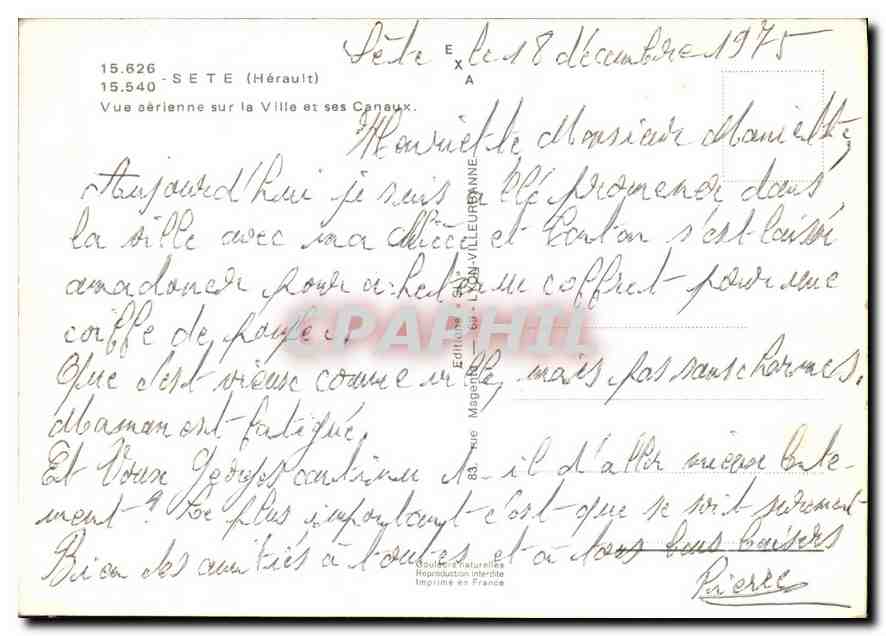 Sète le 18 décembre 1975
EXA
15.626
15.540 - SETE (Hérault)
Vue aérienne sur la Ville et ses Canaux.
Aujourd'hui je suis allé promener dans
la ville avec ma et s'est laissé
amadouer pour acheter un coffret pour une
coiffe de poupée.
Que c'est vieux comme ville, mais pas sans charmes.
Maman est fatiguée.
Et Vous Georges continu t-il d'aller mieux lente-
ment? Le plus important c'est que se soit surement
Bien des amitiés à toutes et à tous bons baisers
Pierre
Editions "SL"
83, rue Magenta - 69 - LYON-VILLEURBANNE
CPAPHIL
Couleurs naturelles
Reproduction interdite
Imprimé en France